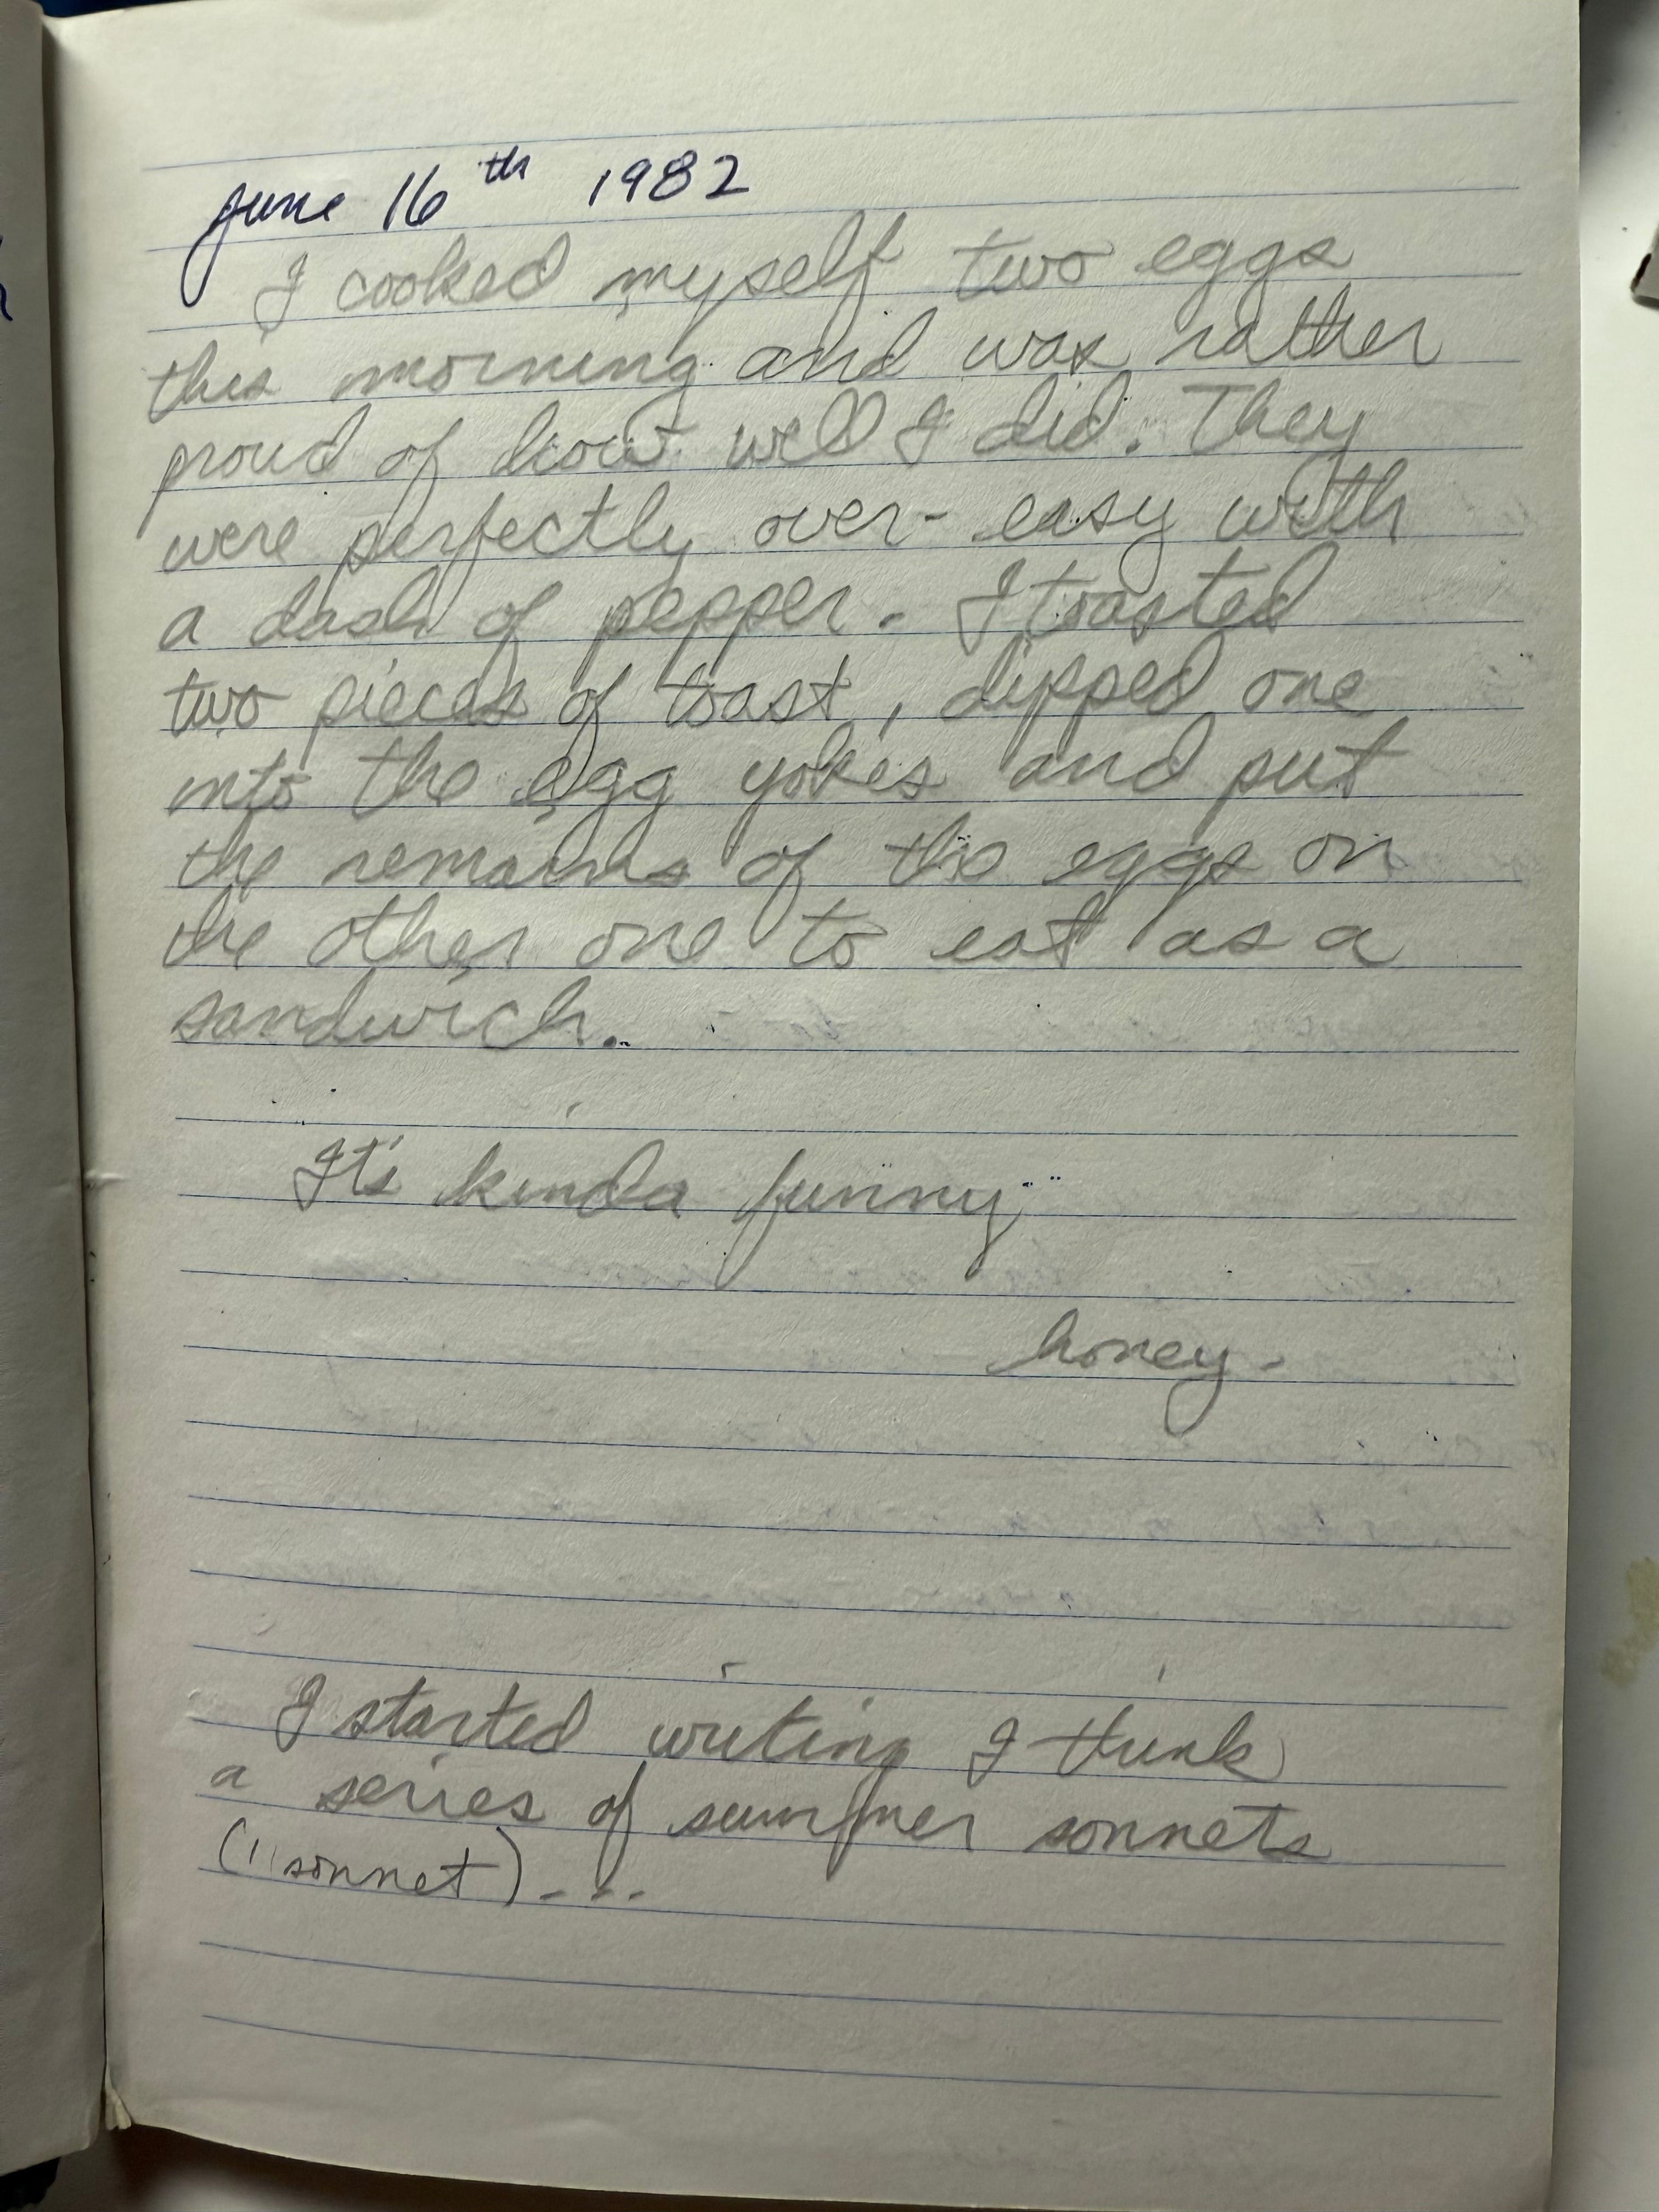 June 16th 1982
I cooked myself two eggs
this morning and was rather
proud of how well I did. They
were perfectly over-easy with
a dash of pepper. I toasted
two pieces of toast, dipped one
into the egg yokes and put
the remains of the eggs on
the other one to eat as a
sandwich.
It's kinda funny
honey.
I started writing I think
a series of summer sonnets
(11 sonnet)...